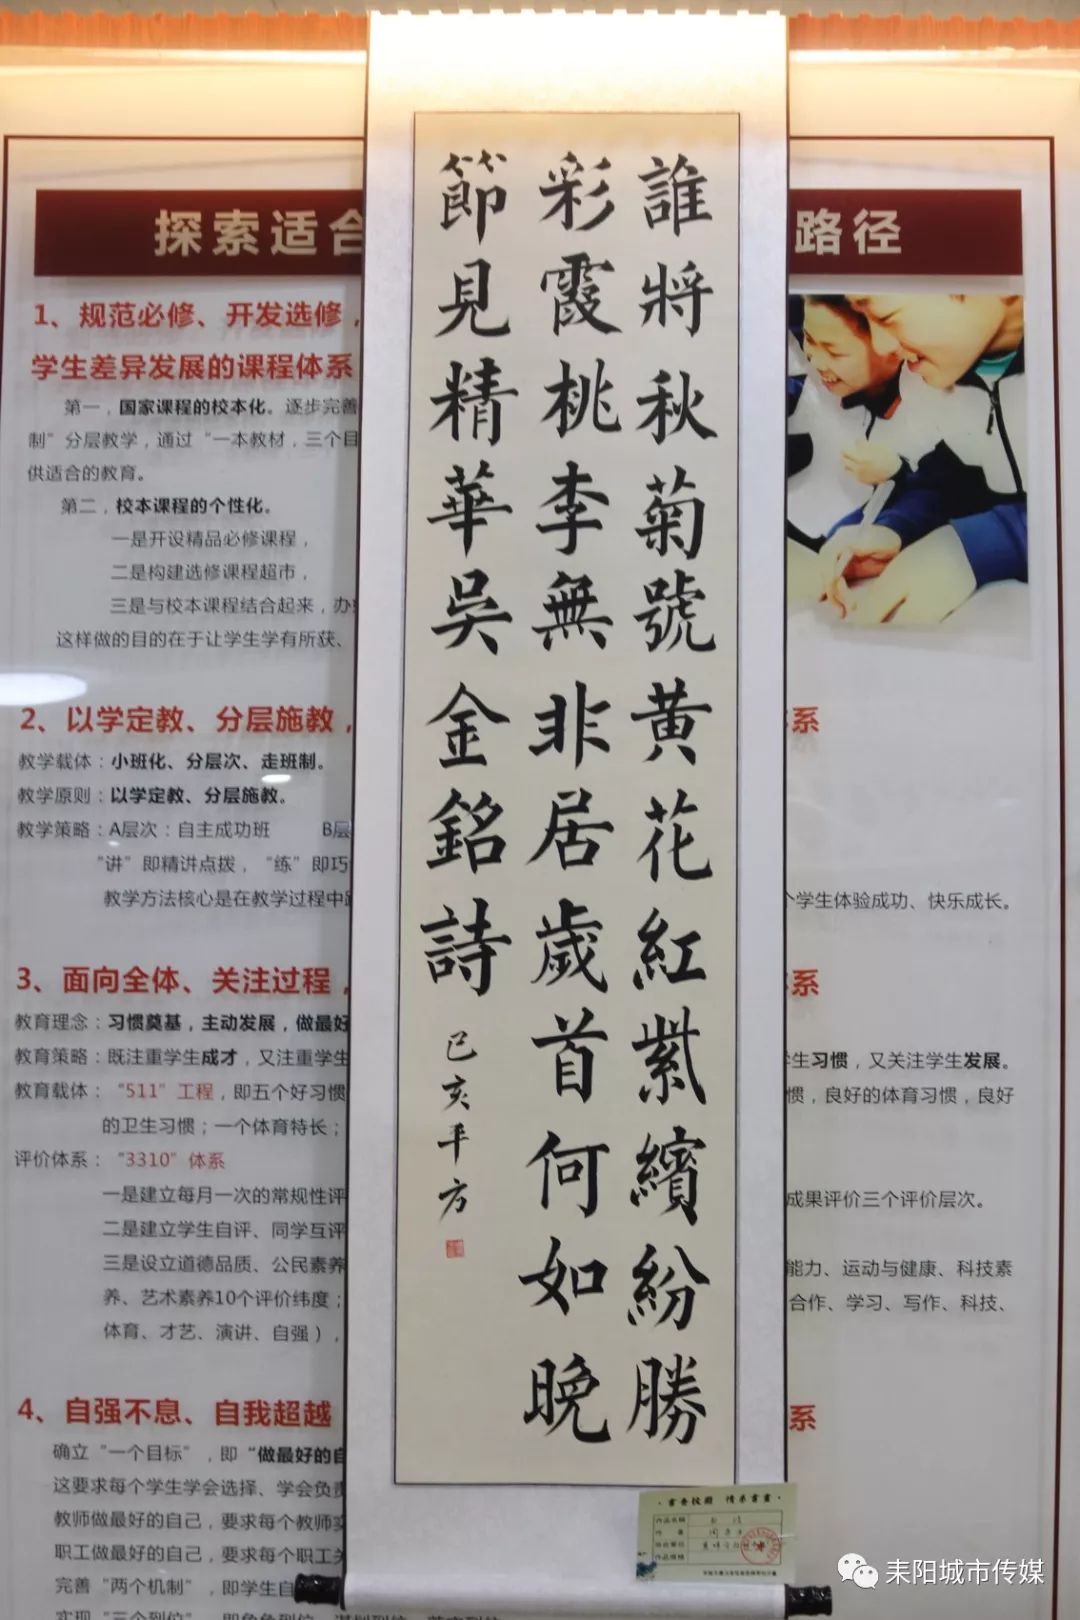 誰將秋菊號黄花紅紫繽紛勝
彩霞桃李無非居歲首何如晚
節見精華吳金銘詩
己亥平方
探索适合
路径
1、规范必修、开发选修，
学生差异发展的课程体系
第一，国家课程的校本化。逐步完善
制”分层教学，通过“一本教材，三个目
供适合的教育。
第二，校本课程的个性化。
一是开设精品必修课程，
二是构建选修课程超市，
三是与校本课程结合起来，办
这样做的目的在于让学生学有所获、
2、以学定教、分层施教，
系
教学载体：小班化、分层次、走班制。
教学原则：以学定教、分层施教。
教学策略：A层次：自主成功班 B层
“讲”即精讲点拨，“练”即巧
教学方法核心是在教学过程中
个学生体验成功、快乐成长。
3、面向全体、关注过程，
系
教育理念：习惯奠基，主动发展，做最好
教育策略：既注重学生成才，又注重学生
学生习惯，又关注学生发展。
教育载体：“511”工程，即五个好习惯
惯，良好的体育习惯，良好
的卫生习惯；一个体育特长；
评价体系：“3310”体系
一是建立每月一次的常规性评
成果评价三个评价层次。
二是建立学生自评、同学互评
三是设立道德品质、公民素养
能力、运动与健康、科技素
养、艺术素养10个评价纬度；
合作、学习、写作、科技、
体育、才艺、演讲、自强），
4、自强不息、自我超越
系
确立“一个目标”，即“做最好的自
这要求每个学生学会选择、学会负责
教师做最好的自己，要求每个教师实
职工做最好的自己，要求每个职工关
完善“两个机制”，即学生自
实现“三个到位”，
作品名称
作者
作品规格
耒阳城市传媒